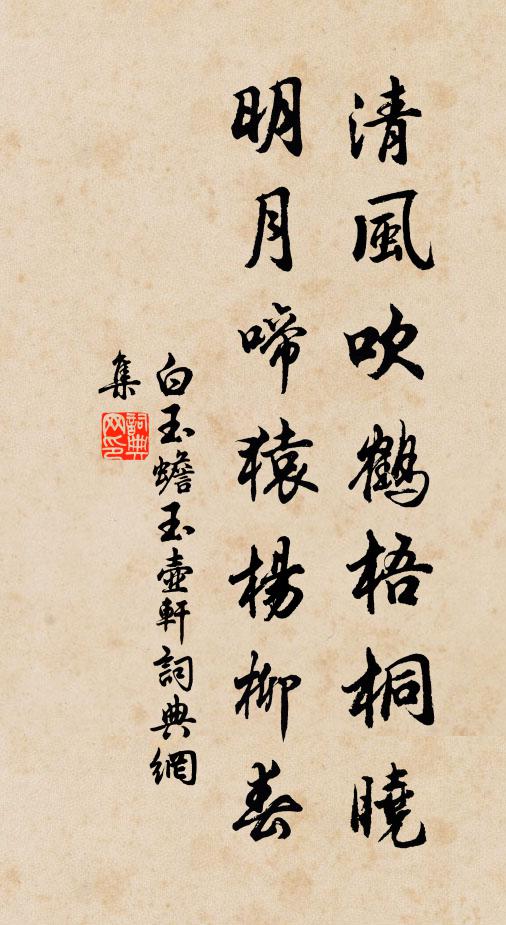 清風吹鶴梧桐曉
明月啼猿楊柳春
白玉蟾玉壺軒詞典網
集
詞典網印